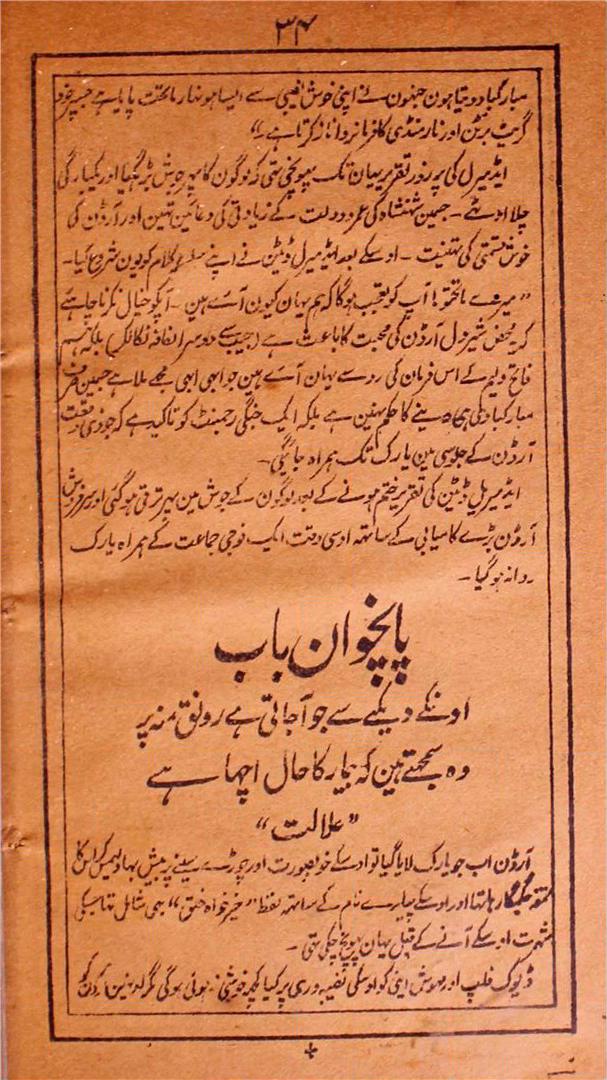 ۳۴
مبارکباد دیتا ہون جنہون نے اپنی خوش نصیبی سے ایسا ہونہار ماتحت پایا ہے جسپر خود
گریٹ برٹن اور نارمنڈی کا فرمانروا ناز کرتا ہے۔"
ایڈمیرل کی پرزور تقریر یہان تک پہونچی تہی کہ لوگون کا پہر جوش بڑھ گیا اور یکبارگی
چلا اوٹھے۔ جسمین شہنشاہ کی عمر و دولت کے زیادتی کی دعائین تہین اور آرڈن کی
خوش قسمتی کی تہنیت۔ اوسکے بعد ایڈمیرل ڈیٹن نے اپنے سلسلہ کلام کو یون شروع کیا۔
"میرے ماتحتو! آپ کو تعجب ہوگا کہ ہم یہان کیون آے ہین۔ آپکو خیال نکرنا چاہئے
کہ یہ محض شیر دل آرڈن کی محبت کا باعث ہے (جیب سے دوسرا لفافہ نکالکر) بلکہ ہم
فاتح ولیم کے اس فرمان کی رو سے یہان آے ہین جو ابہی ابہی مجھے ملا ہے جسمین صرف
مبارکباد کی ہی دینے کا حکم نہین ہے بلکہ ایک جنگی رجمنٹ کو تاکید ہے کہ جو ذی وقعت
آرڈن کے جلوسی مین یارک تک ہمراہ جائیگی۔
ایڈمیریل ڈیٹن کی تقریر ختم ہونے کے بعد لوگون کے جوش مین پہر ترقی ہو گئی اور سرفروش
آرڈن بڑے کامیابی کے ساتہہ اوسی وقت ایک فوجی جماعت کے ہمراہ یارک
روانہ ہو گیا۔
پانچوان باب
اونکے دیکہے سے جو آجاتی ہے رونق منہ پر
وہ سمجھتے ہین کہ بیمار کا حال اچھا ہے
"علالت"
آرڈن اب جو یارک لایا گیا تو اوسکے خوبصورت اور چوڑے سینے پر بیش بہا
تمغہ جگمگا رہا تہا اور اوسکے پیارے نام کے ساتہہ لفظ "خیر خواہ خلق" بہی شامل تہا جسکی
شہرت اوسکے آنے کے قبل یہان پہونچ چکی تہی۔
ڈیوک فلپ اور مہوش اینی کو اوسکی نصیبہ وری پر کیا کچھ خوشی نہ ہوئی ہوگی مگر آرڈن کو